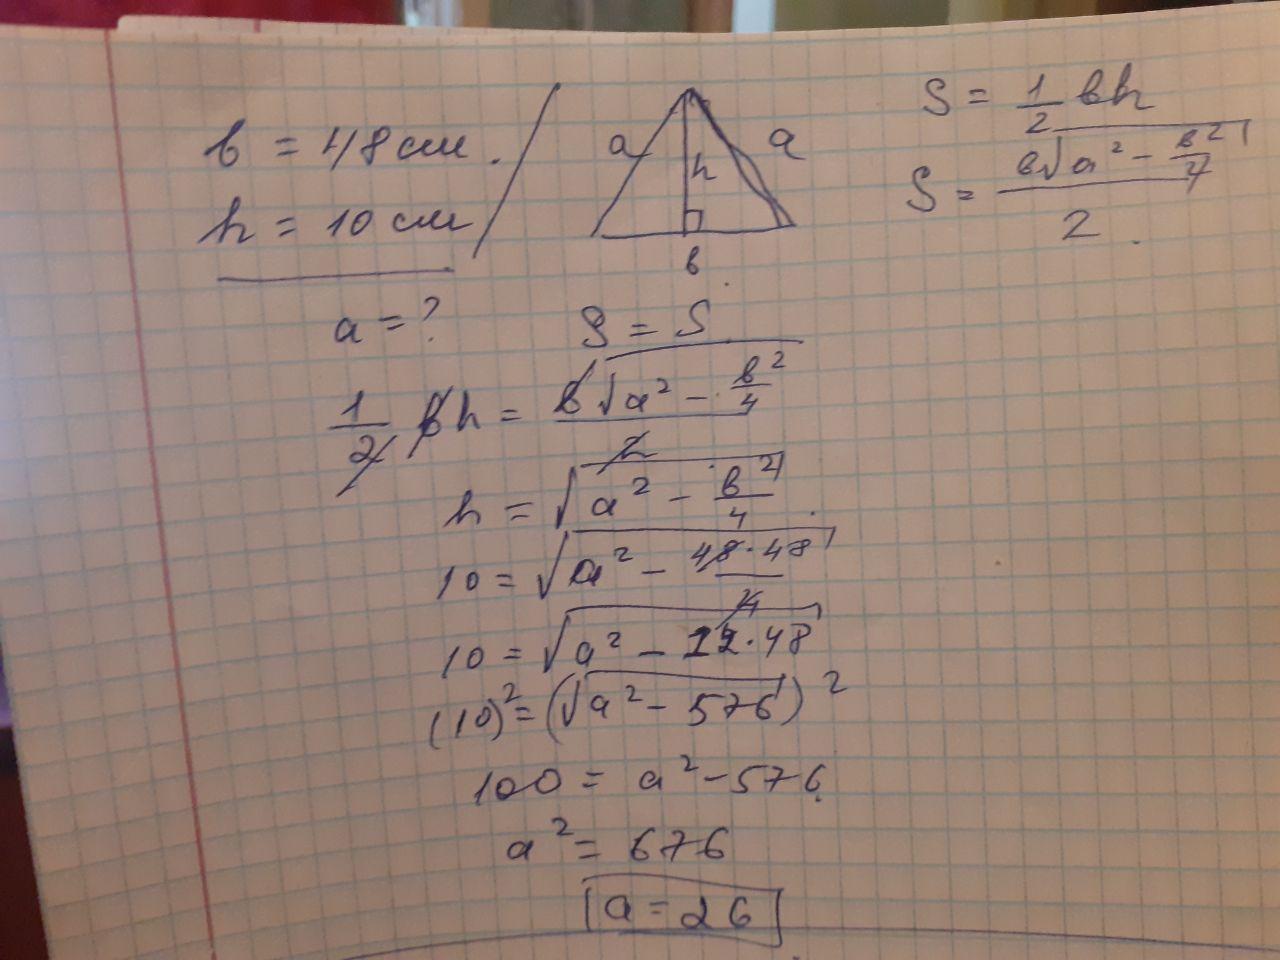 в = 48 см.
h = 10 см
a = ?
a h a
в
S = 1/2 вh
S = в√(a² - в²/4) / 2
S = S
1/2 вh = в√(a² - в²/4) / 2
h = √(a² - в²/4)
10 = √(a² - 48·48/4)
10 = √(a² - 12·48)
(10)² = (√(a² - 576))²
100 = a² - 576
a² = 676
a = 26